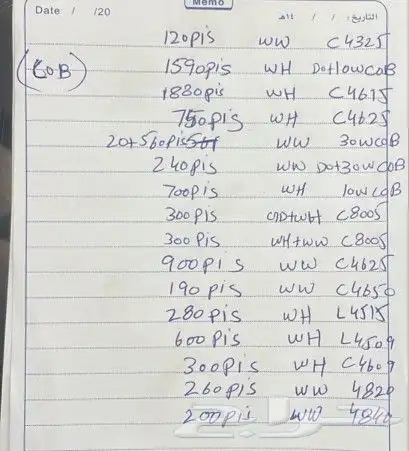 Memo
Date / /20
التاريخ: / / ١٤هـ
120pis WW C4325
(COB) 1590pis WH Do+10WCOB
1880pis WH C4615
750pis WH C4625
20+560pis WW 30WCOB
240pis WW Do+30WCOB
700pis WH 10WCOB
300pis WH C8005
300pis WH+WW C8005
900pis WW C4625
190pis WW C4650
280pis WH L4515
600pis WH L4509
300pis WH C4609
260pis WW 4820
200pis WW 4840